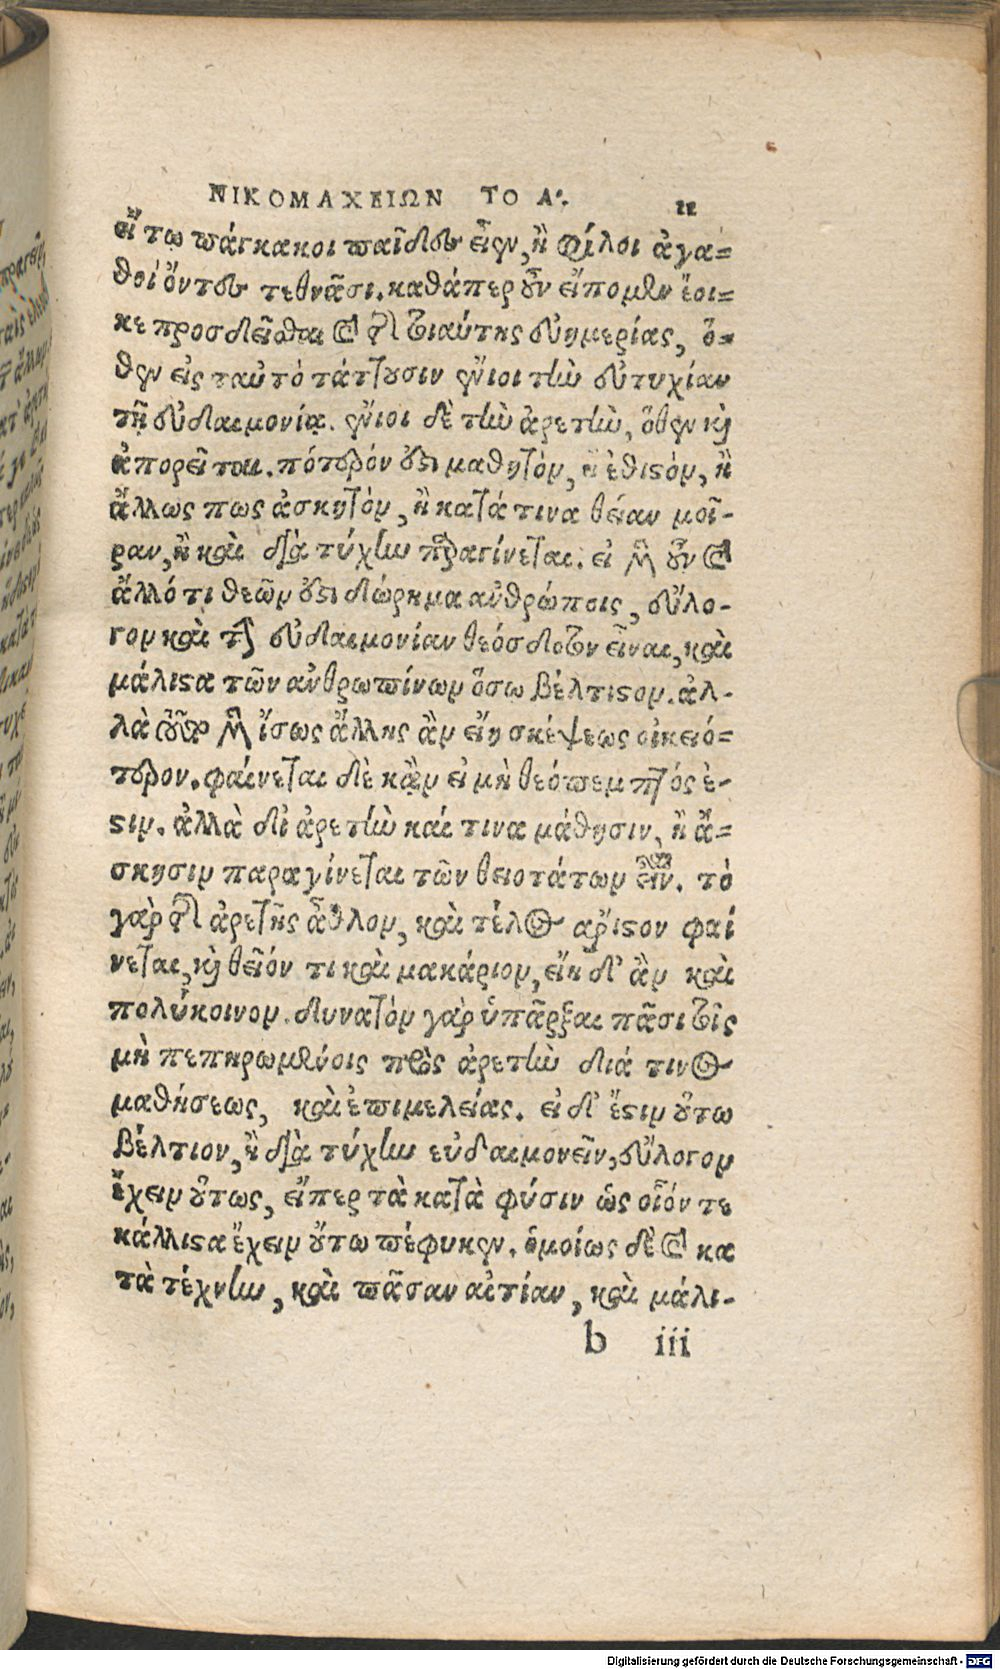 ΝΙΚΟΜΑΧΕΙΩΝ ΤΟ Α. 11
εἴ τῳ πάγκακοι παῖδες εἶεν, ἢ φίλοι ἀγα-
θοὶ ὄντες τεθνᾶσι. καθάπερ οὖν εἴπομεν ἔοι-
κε προσδεῖσθαι καὶ τῆς τοιαύτης εὐημερίας, ὅ-
θεν εἰς ταὐτὸ τάττουσιν ἔνιοι τὴν εὐτυχίαν
τῇ εὐδαιμονίᾳ. ἔνιοι δὲ τὴν ἀρετὴν, ὅθεν καὶ
ἀπορεῖται. πότερόν ἐστι μαθητὸν, ἢ ἐθιστὸν, ἢ
ἄλλως πως ἀσκητὸν, ἢ κατά τινα θείαν μοῖ-
ραν, ἢ καὶ διὰ τύχην παραγίνεται. εἰ μὲν οὖν καὶ
ἄλλό τι θεῶν ἐστι δώρημα ἀνθρώποις, εὔλο-
γον καὶ τὴν εὐδαιμονίαν θεόσδοτον εἶναι, καὶ
μάλιστα τῶν ἀνθρωπίνων ὅσῳ βέλτιστον. ἀλ-
λὰ τοῦτο μὲν ἴσως ἄλλης ἂν εἴη σκέψεως οἰκειό-
τερον. φαίνεται δὲ κἂν εἰ μὴ θεόπεμπτός ἐ-
στιν. ἀλλὰ δι' ἀρετὴν καί τινα μάθησιν, ἢ ἄ-
σκησιν παραγίνεται τῶν θειοτάτων εἶναι. τὸ
γὰρ τῆς ἀρετῆς ἆθλον, καὶ τέλος ἄριστον φαί
νεται, καὶ θεῖόν τι καὶ μακάριον, εἴη δ' ἂν καὶ
πολύκοινον. δυνατὸν γὰρ ὑπᾶρξαι πᾶσι τοῖς
μὴ πεπηρωμένοις πρὸς ἀρετὴν διά τινος
μαθήσεως, καὶ ἐπιμελείας. εἰ δ' ἔστιν οὕτω
βέλτιον, ἢ διὰ τύχην εὐδαιμονεῖν, εὔλογον
ἔχειν οὕτως, εἴπερ τὰ κατὰ φύσιν ὡς οἷόν τε
κάλλιστα ἔχειν οὕτω πέφυκεν. ὁμοίως δὲ καὶ κα
τὰ τέχνην, καὶ πᾶσαν αἰτίαν, καὶ μάλι-
b iii
Digitalisierung gefördert durch die Deutsche Forschungsgemeinschaft - DFG